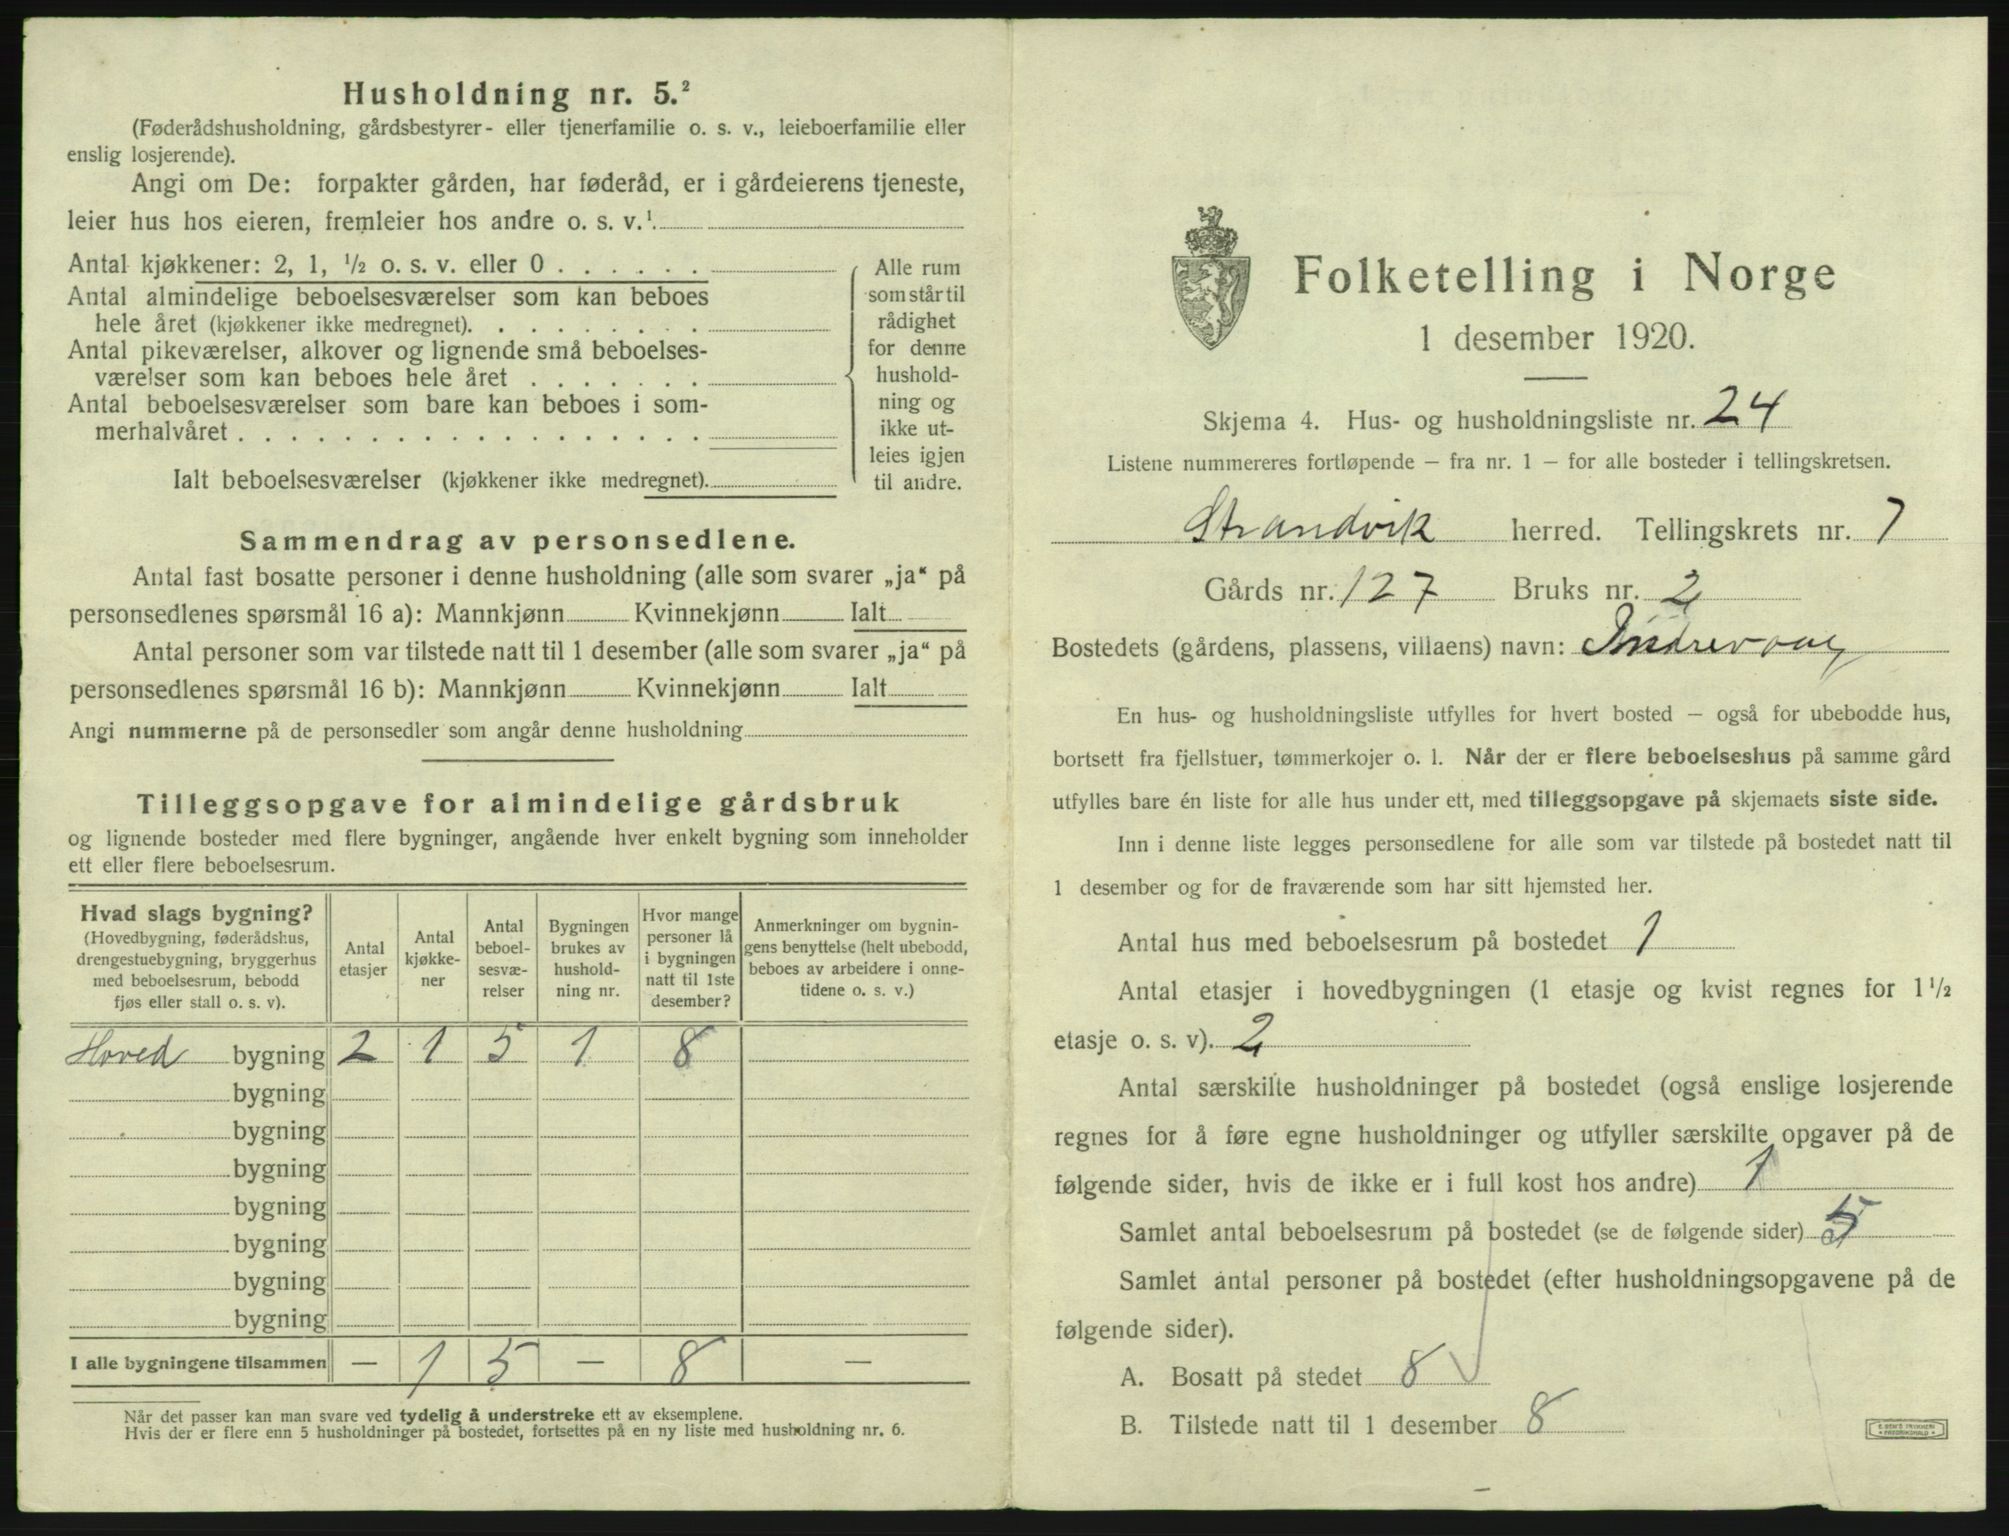 Husholdning nr. 5.²
(Føderådshusholdning, gårdsbestyrer- eller tjenerfamilie o. s. v., leieboerfamilie eller
enslig losjerende).
Angi om De: forpakter gården, har føderåd, er i gårdeierens tjeneste,
leier hus hos eieren, fremleier hos andre o. s. v.¹
Antal kjøkkener: 2, 1, ½ o. s. v. eller 0 . . . . . .
Antal almindelige beboelsesværelser som kan beboes
hele året (kjøkkener ikke medregnet). . . . . . . . .
Antal pikeværelser, alkover og lignende små beboelses-
værelser som kan beboes hele året . . . . . . .
Antal beboelsesværelser som bare kan beboes i som-
merhalvåret . . . . . . . . . . . . . . . . . .
Ialt beboelsesværelser (kjøkkener ikke medregnet).
Alle rum
som står til
rådighet
for denne
hushold-
ning og
ikke ut-
leies igjen
til andre.
Sammendrag av personsedlene.
Antal fast bosatte personer i denne husholdning (alle som svarer „ja“ på
personsedlenes spørsmål 16 a): Mannkjønn Kvinnekjønn Ialt
Antal personer som var tilstede natt til 1 desember (alle som svarer „ja“ på
personsedlenes spørsmål 16 b): Mannkjønn Kvinnekjønn Ialt
Angi nummerne på de personsedler som angår denne husholdning
Tilleggsopgave for almindelige gårdsbruk
og lignende bosteder med flere bygninger, angående hver enkelt bygning som inneholder
ett eller flere beboelsesrum.
Hvad slags bygning?
(Hovedbygning, føderådshus,
drengestuebygning, bryggerhus
med beboelsesrum, bebodd
fjøs eller stall o. s. v).
Antal
etasjer
Antal
kjøkke-
ner
Antal
beboel-
sesvæ-
relser
Bygningen
brukes av
hushold-
ning nr.
Hvor mange
personer lå
i bygningen
natt til 1ste
desember?
Anmerkninger om bygnin-
gens benyttelse (helt ubebodd,
beboes av arbeidere i onne-
tidene o. s. v.)
Hoved bygning 2 1 5 1 8
bygning
bygning
bygning
bygning
bygning
bygning
bygning
I alle bygningene tilsammen — 1 5 — 8 —
Når det passer kan man svare ved tydelig å understreke ett av eksemplene.
Hvis der er flere enn 5 husholdninger på bostedet, fortsettes på en ny liste med husholdning nr. 6.
Folketelling i Norge
1 desember 1920.
Skjema 4. Hus- og husholdningsliste nr. 24
Listene nummereres fortløpende – fra nr. 1 – for alle bosteder i tellingskretsen.
Strandvik herred. Tellingskrets nr. 7
Gårds nr. 127 Bruks nr. 2
Bostedets (gårdens, plassens, villaens) navn: Indrevaag
En hus- og husholdningsliste utfylles for hvert bosted – også for ubebodde hus,
bortsett fra fjellstuer, tømmerkojer o. l. Når der er flere beboelseshus på samme gård
utfylles bare én liste for alle hus under ett, med tilleggsopgave på skjemaets siste side.
Inn i denne liste legges personsedlene for alle som var tilstede på bostedet natt til
1 desember og for de fraværende som har sitt hjemsted her.
Antal hus med beboelsesrum på bostedet 1
Antal etasjer i hovedbygningen (1 etasje og kvist regnes for 1 ½
etasje o. s. v). 2
Antal særskilte husholdninger på bostedet (også enslige losjerende
regnes for å føre egne husholdninger og utfyller særskilte opgaver på de
følgende sider, hvis de ikke er i full kost hos andre) 1
Samlet antal beboelsesrum på bostedet (se de følgende sider) 5
Samlet antal personer på bostedet (efter husholdningsopgavene på de
følgende sider).
A. Bosatt på stedet 8
B. Tilstede natt til 1 desember 8